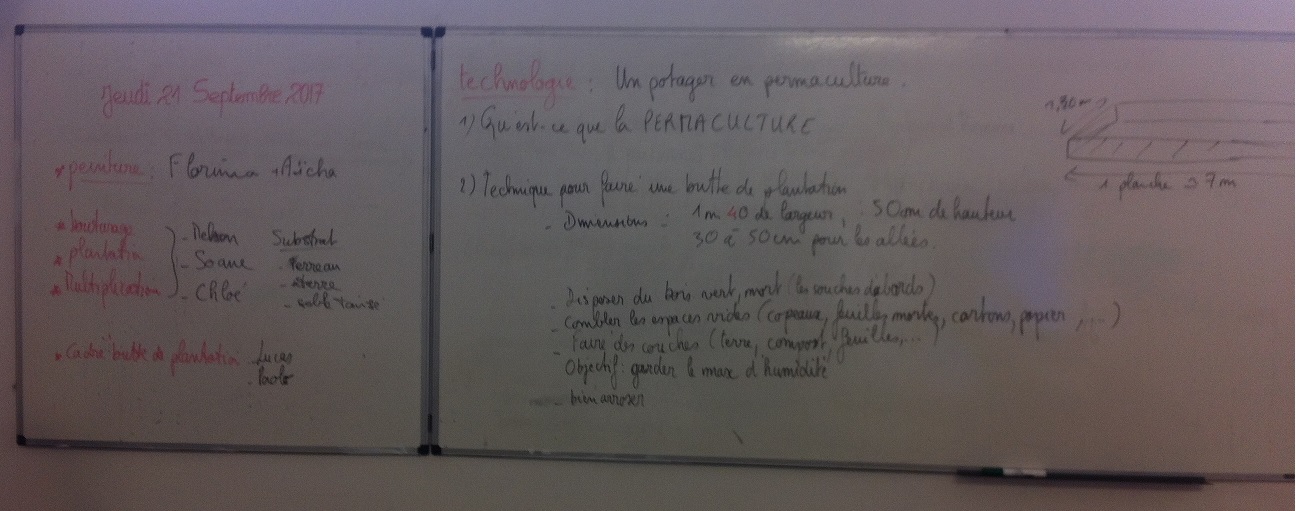 Jeudi 21 Septembre 2017
* peinture : Florina + Aïcha
* bouturage
* plantation
* Multiplication
- Nelson
- Soane
- Chloé
Substrat
- Terreau
- terre
- sable
* Cadre butte de plantation
- Lucas
- Paolo
technologie : Un potager en permaculture.
1) Qu'est-ce que la PERMACULTURE
2) Technique pour faire une butte de plantation
- Dimensions : 1m 40 de largeur, 50cm de hauteur
30 à 50cm pour les allées.
- Disposer du bois vert, mort (les souches d'abords)
- Combler les espaces vides (copeaux, feuilles mortes, cartons, papier, ...)
- Faire des couches (terre, compost, feuilles, ...)
Objectif : garder le max d'humidité
- bien arroser
1 planche 7m